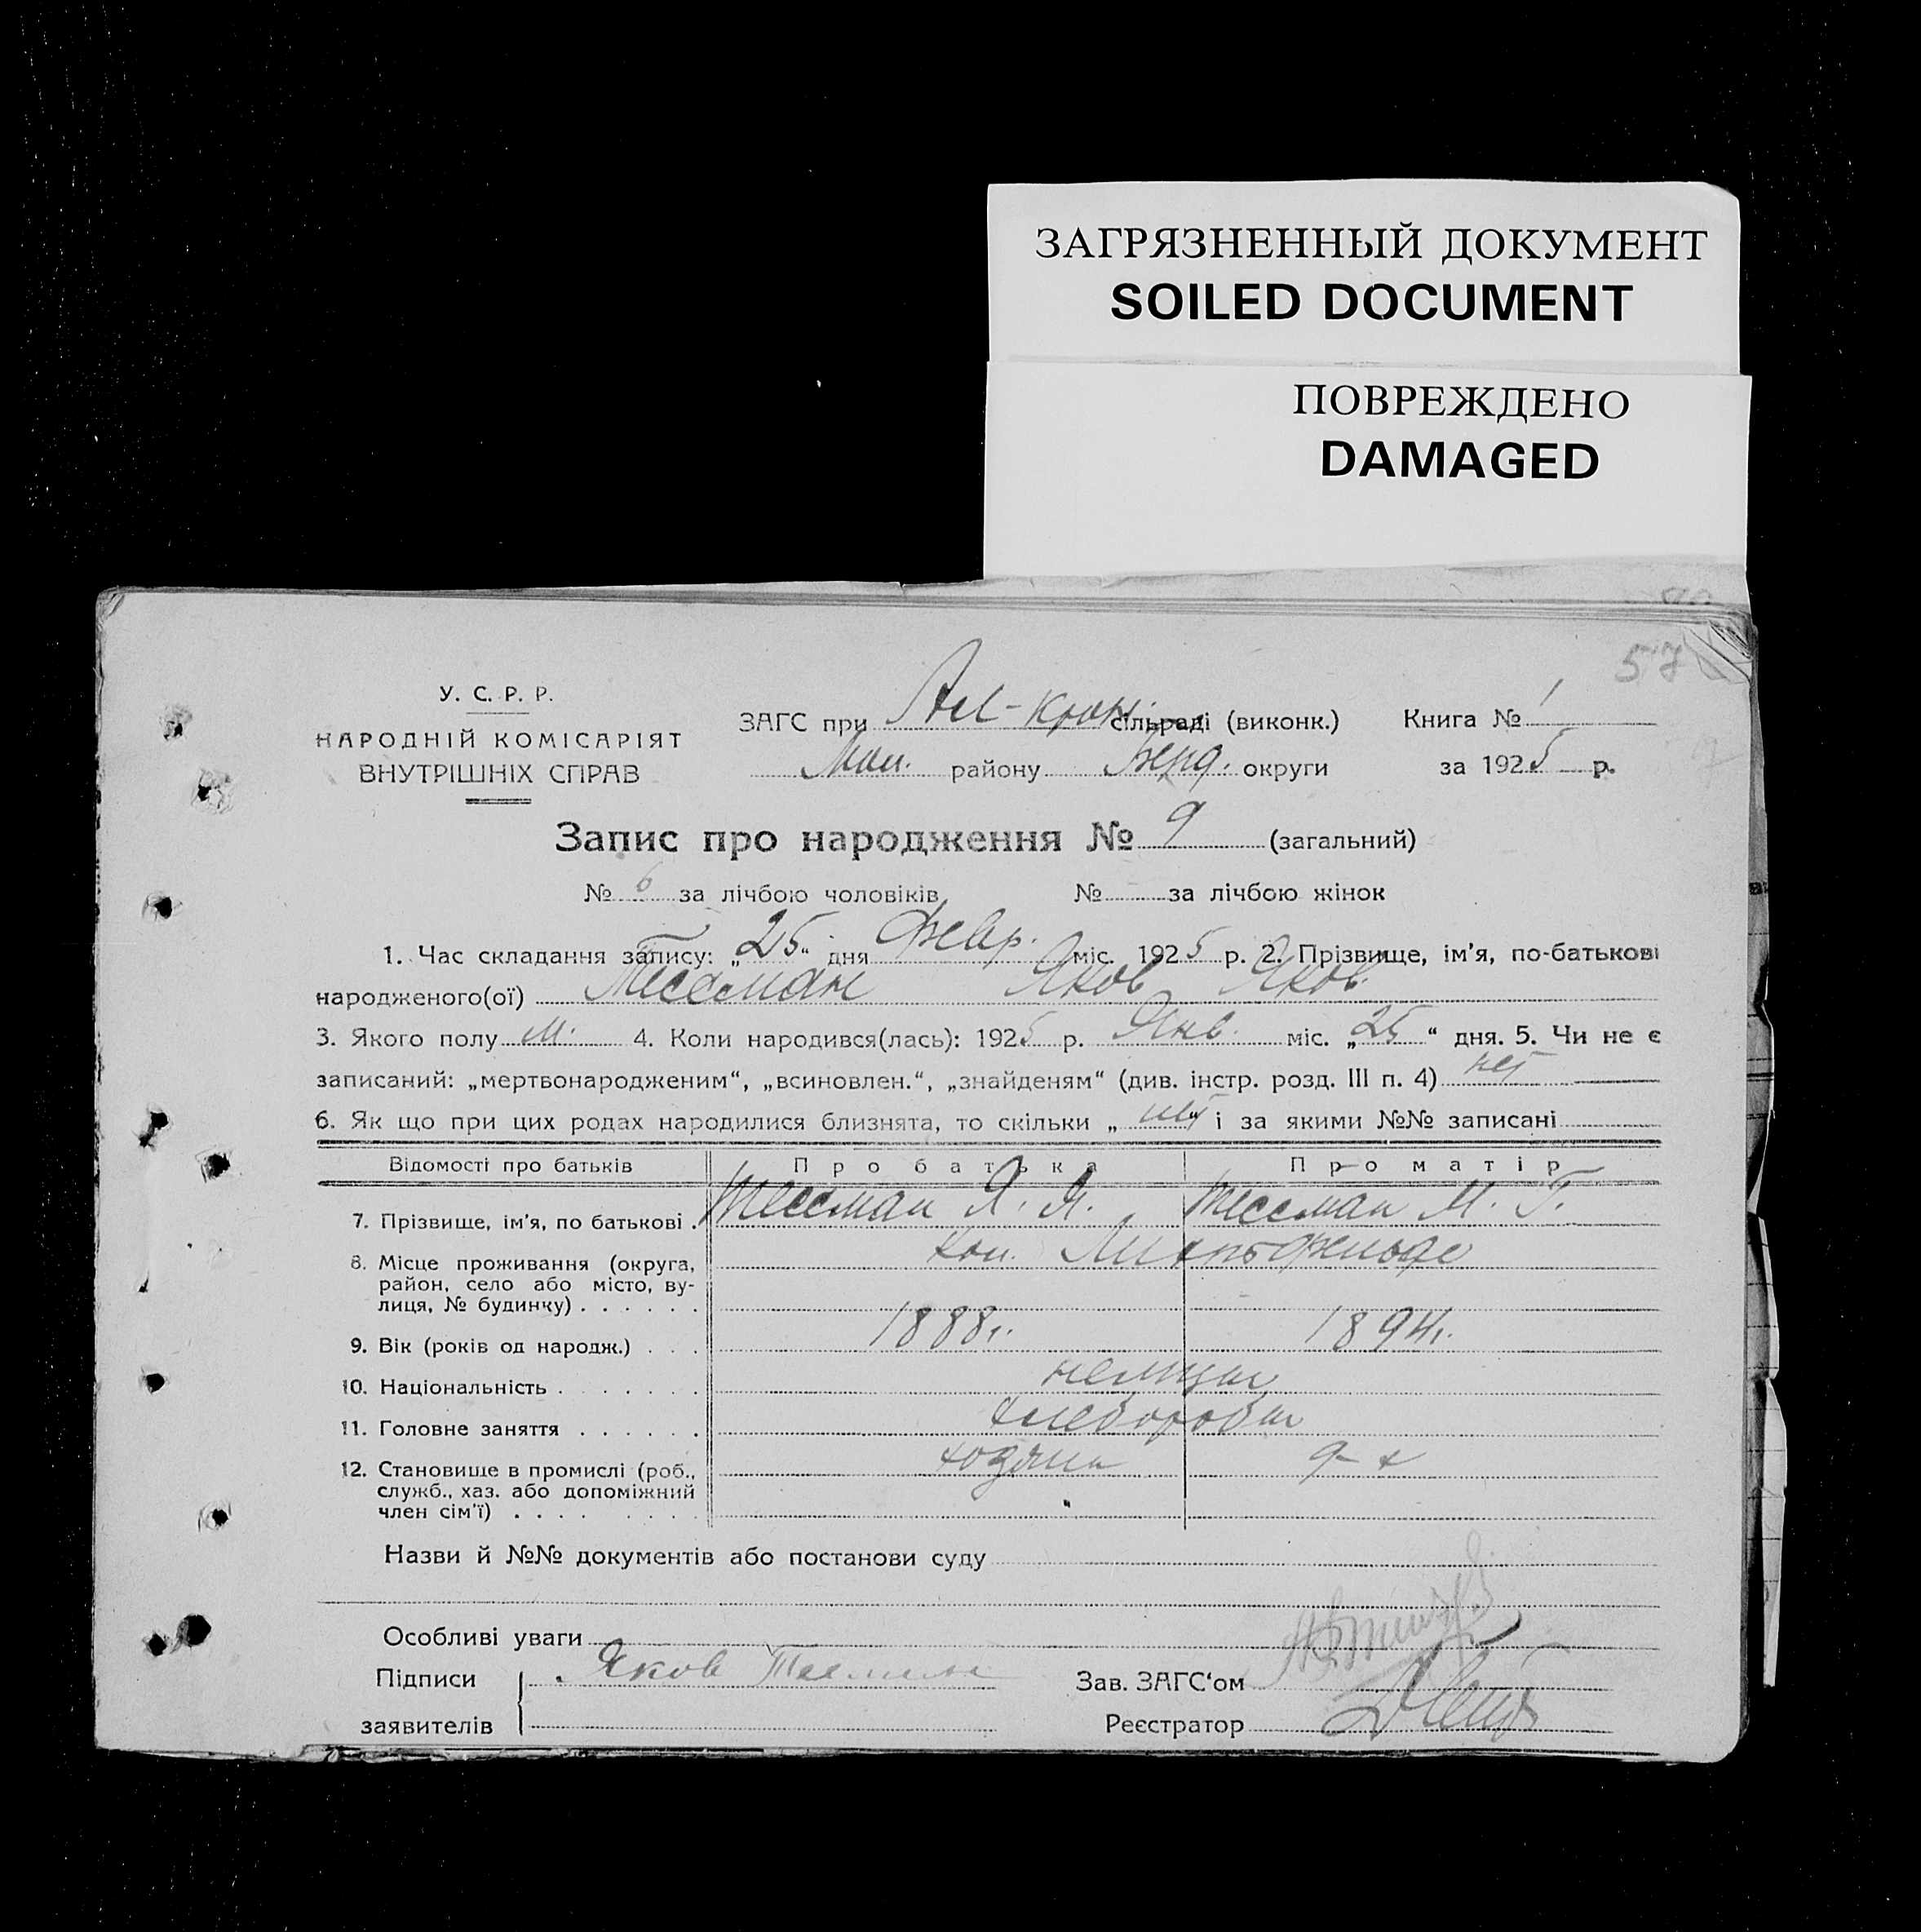 ЗАГРЯЗНЕННЫЙ ДОКУМЕНТ
SOILED DOCUMENT
ПОВРЕЖДЕНО
DAMAGED
57
У. С. Р. Р.
НАРОДНІЙ КОМІСАРІЯТ
ВНУТРІШНІХ СПРАВ
ЗАГС при сільраді (виконк.) Книга № 1
Мол. району Берд. округи за 1925 р.
Запис про народження № 9 (загальний)
№ 6 за лічбою чоловіків № за лічбою жінок
1. Час складання запису: „25“ дня Февр. міс. 1925 р. 2. Прізвище, ім'я, по-батькові
народженого(ої) Тессман Яков Яков.
3. Якого полу м. 4. Коли народився(лась): 1925 р. Янв. міс. „25“ дня. 5. Чи не є
записаний: „мертвонародженим“, „всиновлен.“, „знайденям“ (див. інстр. розд. III п. 4) нет
6. Як що при цих родах народилися близнята, то скільки „ нет і за якими №№ записані
Відомості про батьків Про батька Про матір
7. Прізвище, ім'я, по батькові . Тессман Я. Я. Тессман М. Г.
8. Місце проживання (округа, кол.
район, село або місто, ву-
лиця, № будинку) . . . . . .
9. Вік (років од народж.) . . . 1888г. 1894г.
10. Національність . . . . . . . немцы
11. Головне заняття . . . . . . хлеборобы
12. Становище в промислі (роб., хозяин
служб., хаз. або допоміжний
член сім'ї) . . . . . . . .
Назви й №№ документів або постанови суду
Особливі уваги
Підписи Яков Тессман Зав. ЗАГС‘ом
заявителів Реєстратор